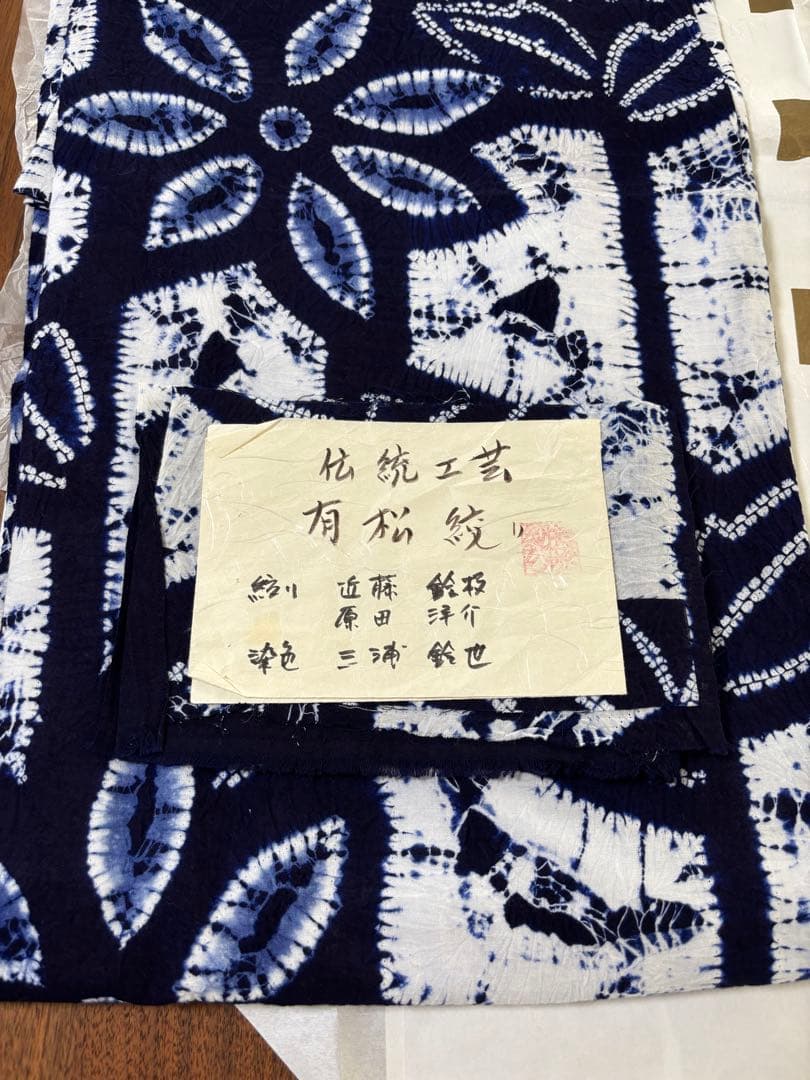 伝統工芸
有松絞り
絞り 近藤 鈴枝
原田 洋介
染色 三浦 鈴也